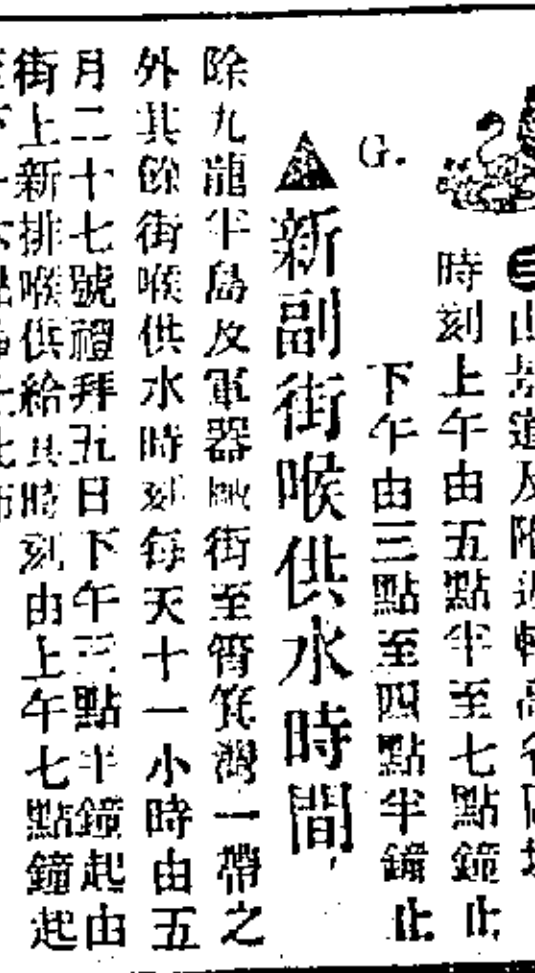 時刻上午由五點半至七點鐘止
下午由三點至四點半鐘止
G.
新副街喉供水時間
除九龍半島及軍器廠街至筲箕灣一帶之
外其餘街喉供水時刻每天十一小時由五
月二十七號禮拜五日下午三點半鐘起由
街上新排喉供給其時刻由上午七點鐘起